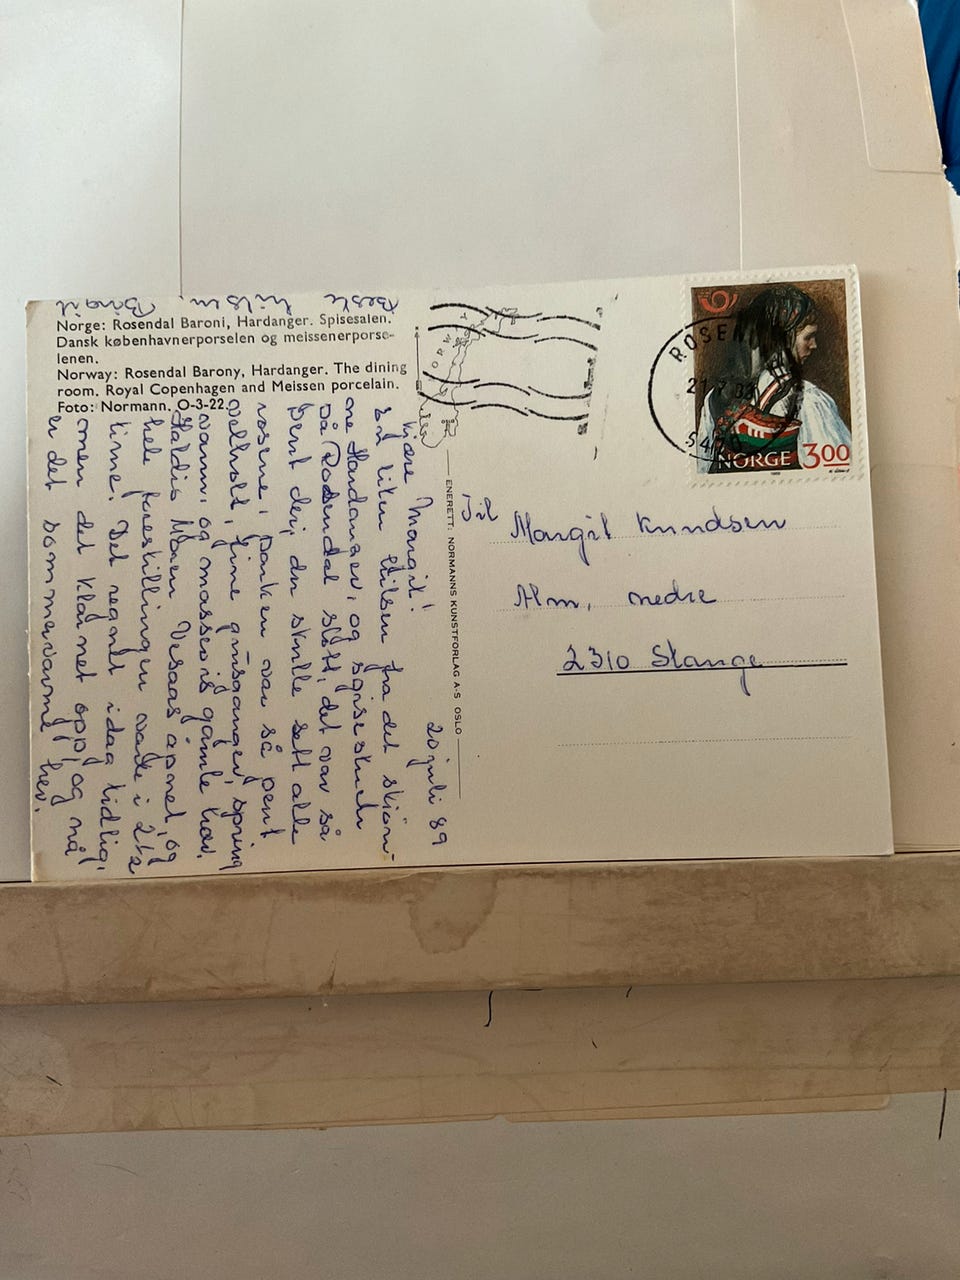 Norge: Rosendal Baroni, Hardanger. Spisesalen.
Dansk københavnerporselen og meissenerporse-
lenen.
Norway: Rosendal Barony, Hardanger. The dining
room. Royal Copenhagen and Meissen porcelain.
Foto: Normann. O-3-22
20 juli 89
Kjære Margit!
En liten hilsen fra det skjøn-
ne Hardanger, og
på Rosendal slott, det var så
pent der, du skulle sett alle
rosene, parken var så pent
velholt, fine gåsganger, spring
vann, og massevis gamle
Haldis Moren Vesaas åpnet, og
hele forestillingen varte i 2½
time. Det regnet idag tidlig,
men det klårnet opp, og nå
er det sommervarme her.
Beste hilsen,
Birgit
ENERETT: NORMANNS KUNSTFORLAG A-S OSLO
NORWAY
ROSENDAL
21.7.89
5470
NORGE 3.00
Til Margit Knudsen
Alm, nedre
2310 Stange